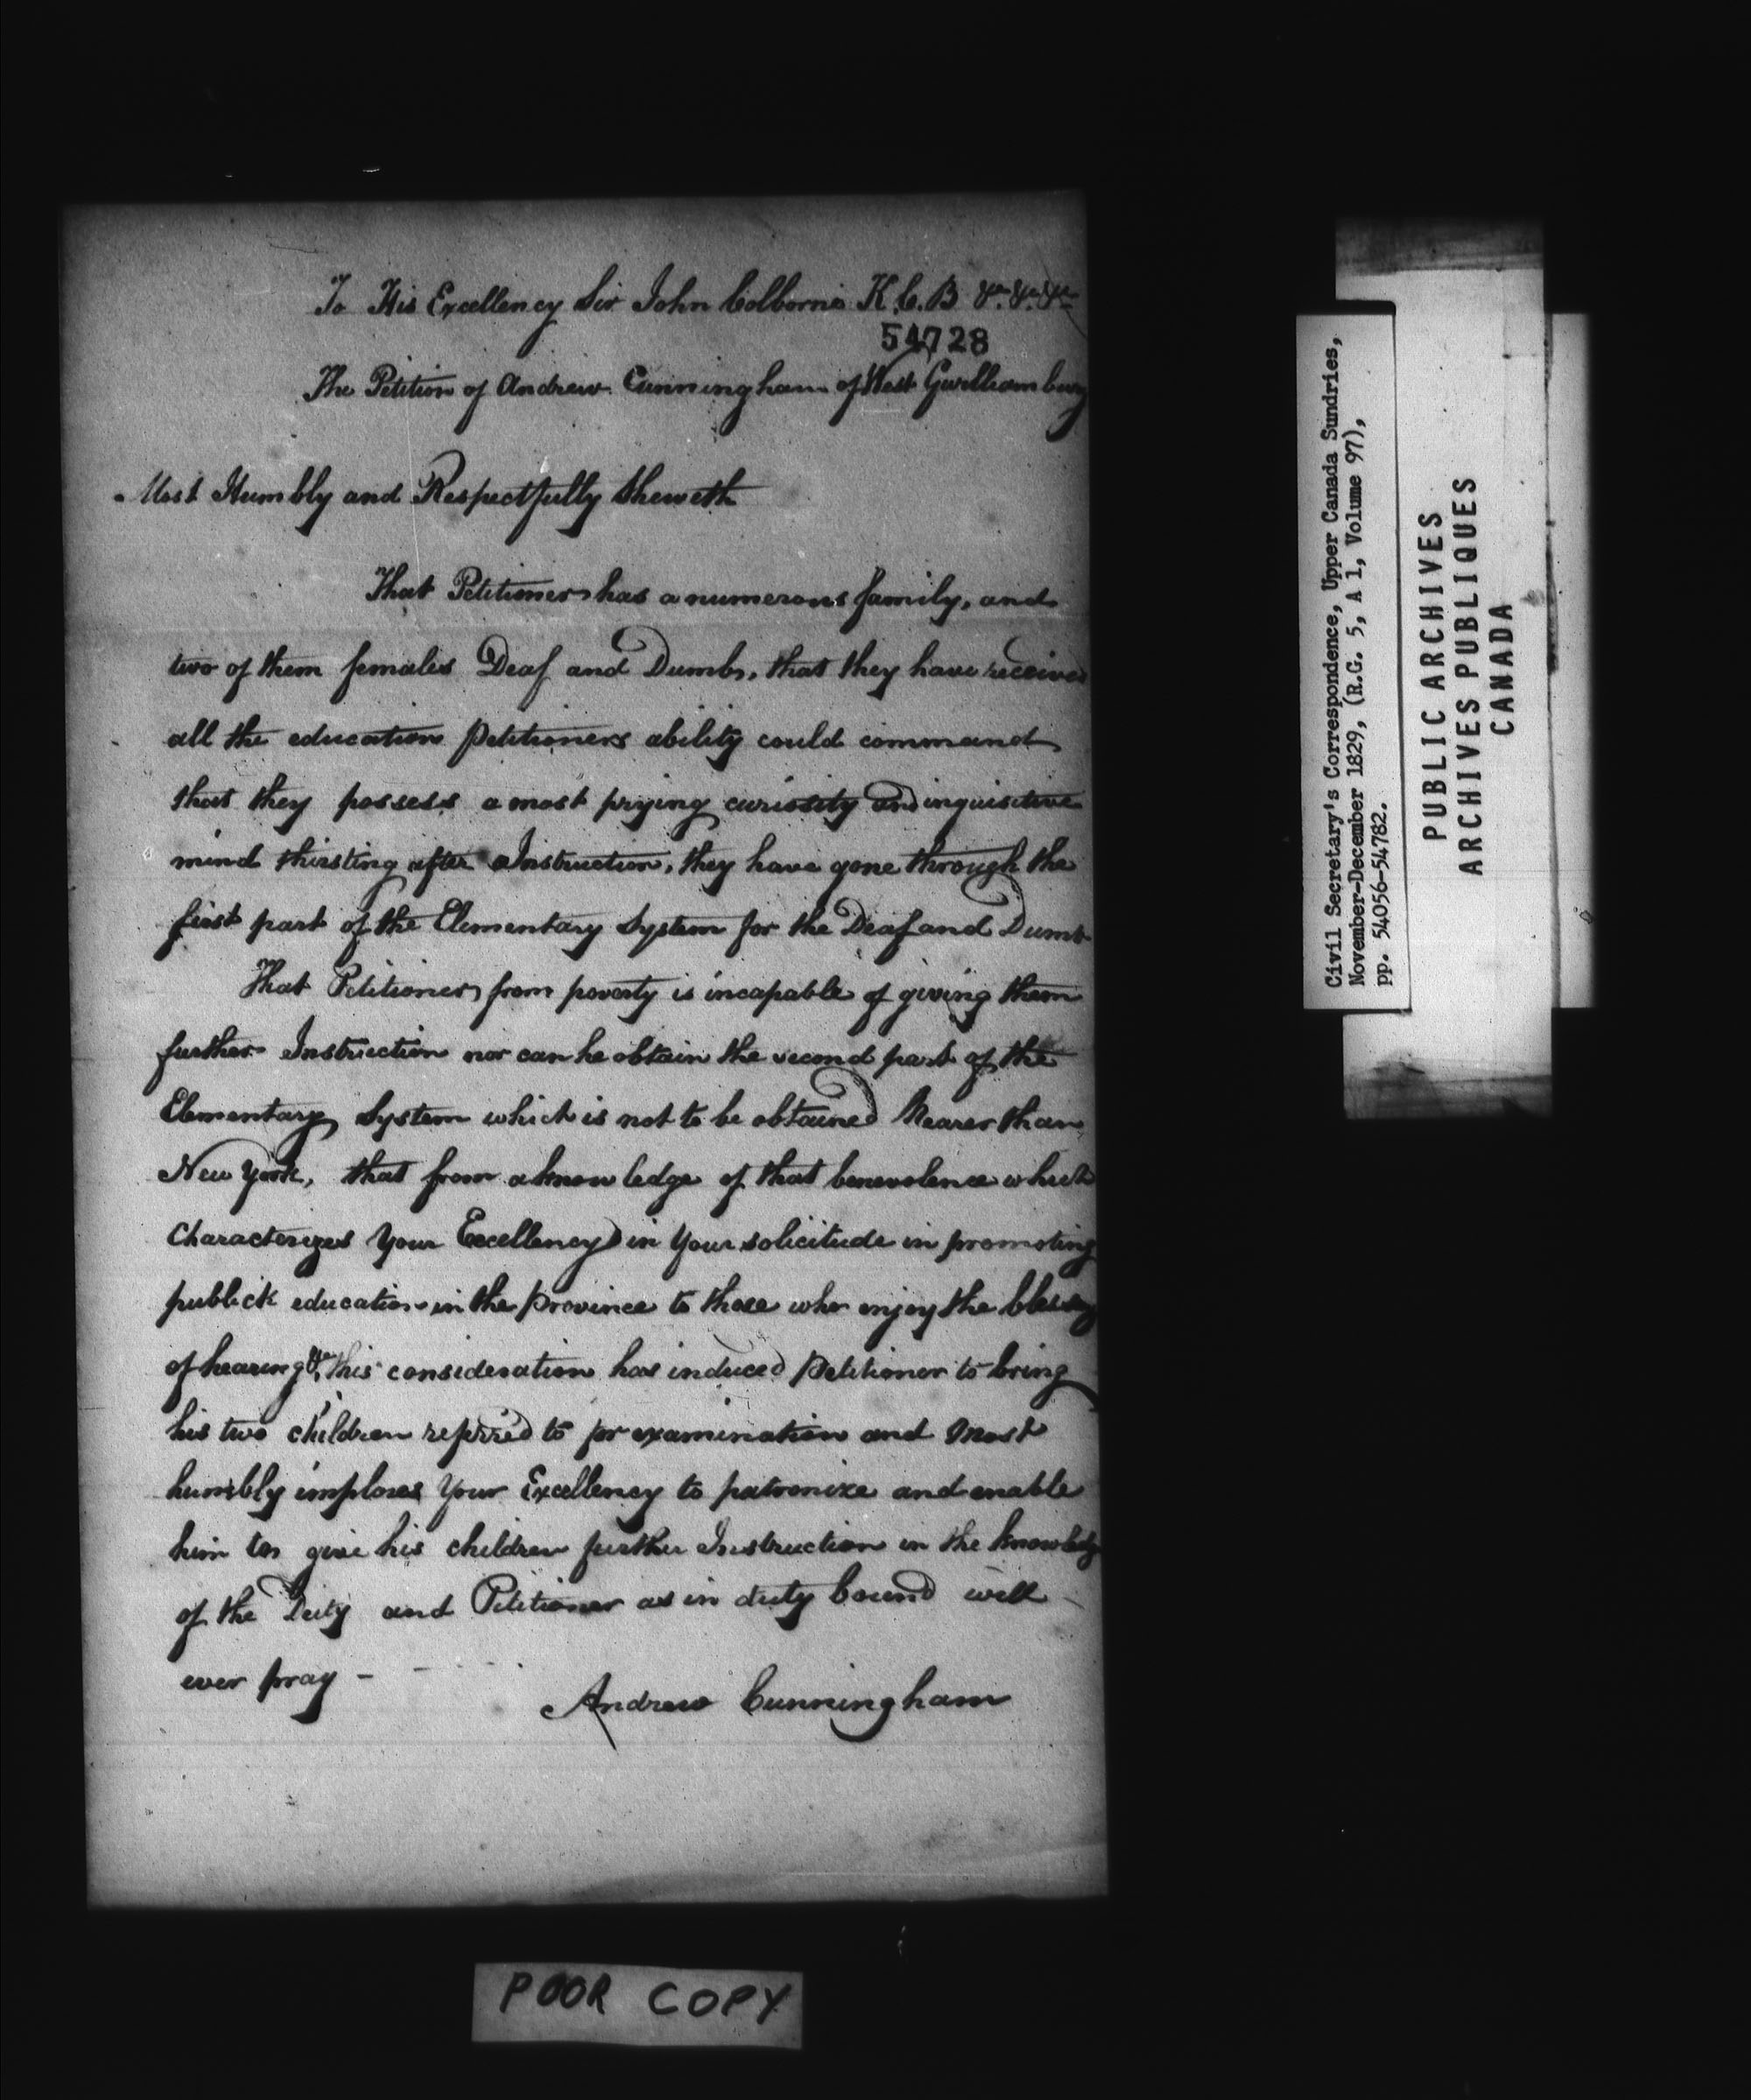 To His Excellency Sir John Colborne K.C.B &c. &c. &c.
54728
The Petition of Andrew Cunningham of West Gwilliambury
Most Humbly and Respectfully Sheweth
That Petitioner has a numerous family, and
two of them females Deaf and Dumb, that they have received
all the education Petitioners ability could command
that they possess a most prying curiosity and inquisitive
mind thirsting after Instruction, they have gone through the
first part of the Elementary System for the Deaf and Dumb
That Petitioner from poverty is incapable of giving them
further Instruction nor can he obtain the second part of the
Elementary System which is not to be obtained Nearer than
New York, that from a knowledge of that benevolence which
Characterizes Your Excellency in Your solicitude in promoting
publick education in the Province to those who enjoy the blessing
of hearing &c. this consideration has induced Petitioner to bring
his two children referred to for examination and Most
humbly implores Your Excellency to patronize and enable
him to give his children further Instruction in the knowledge
of the Deity and Petitioner as in duty bound will
ever pray -
Andrew Cunningham
Civil Secretary's Correspondence, Upper Canada Sundries,
November-December 1829, (R.G. 5, A 1, Volume 97),
pp. 54056-54782.
PUBLIC ARCHIVES
ARCHIVES PUBLIQUES
CANADA
POOR COPY